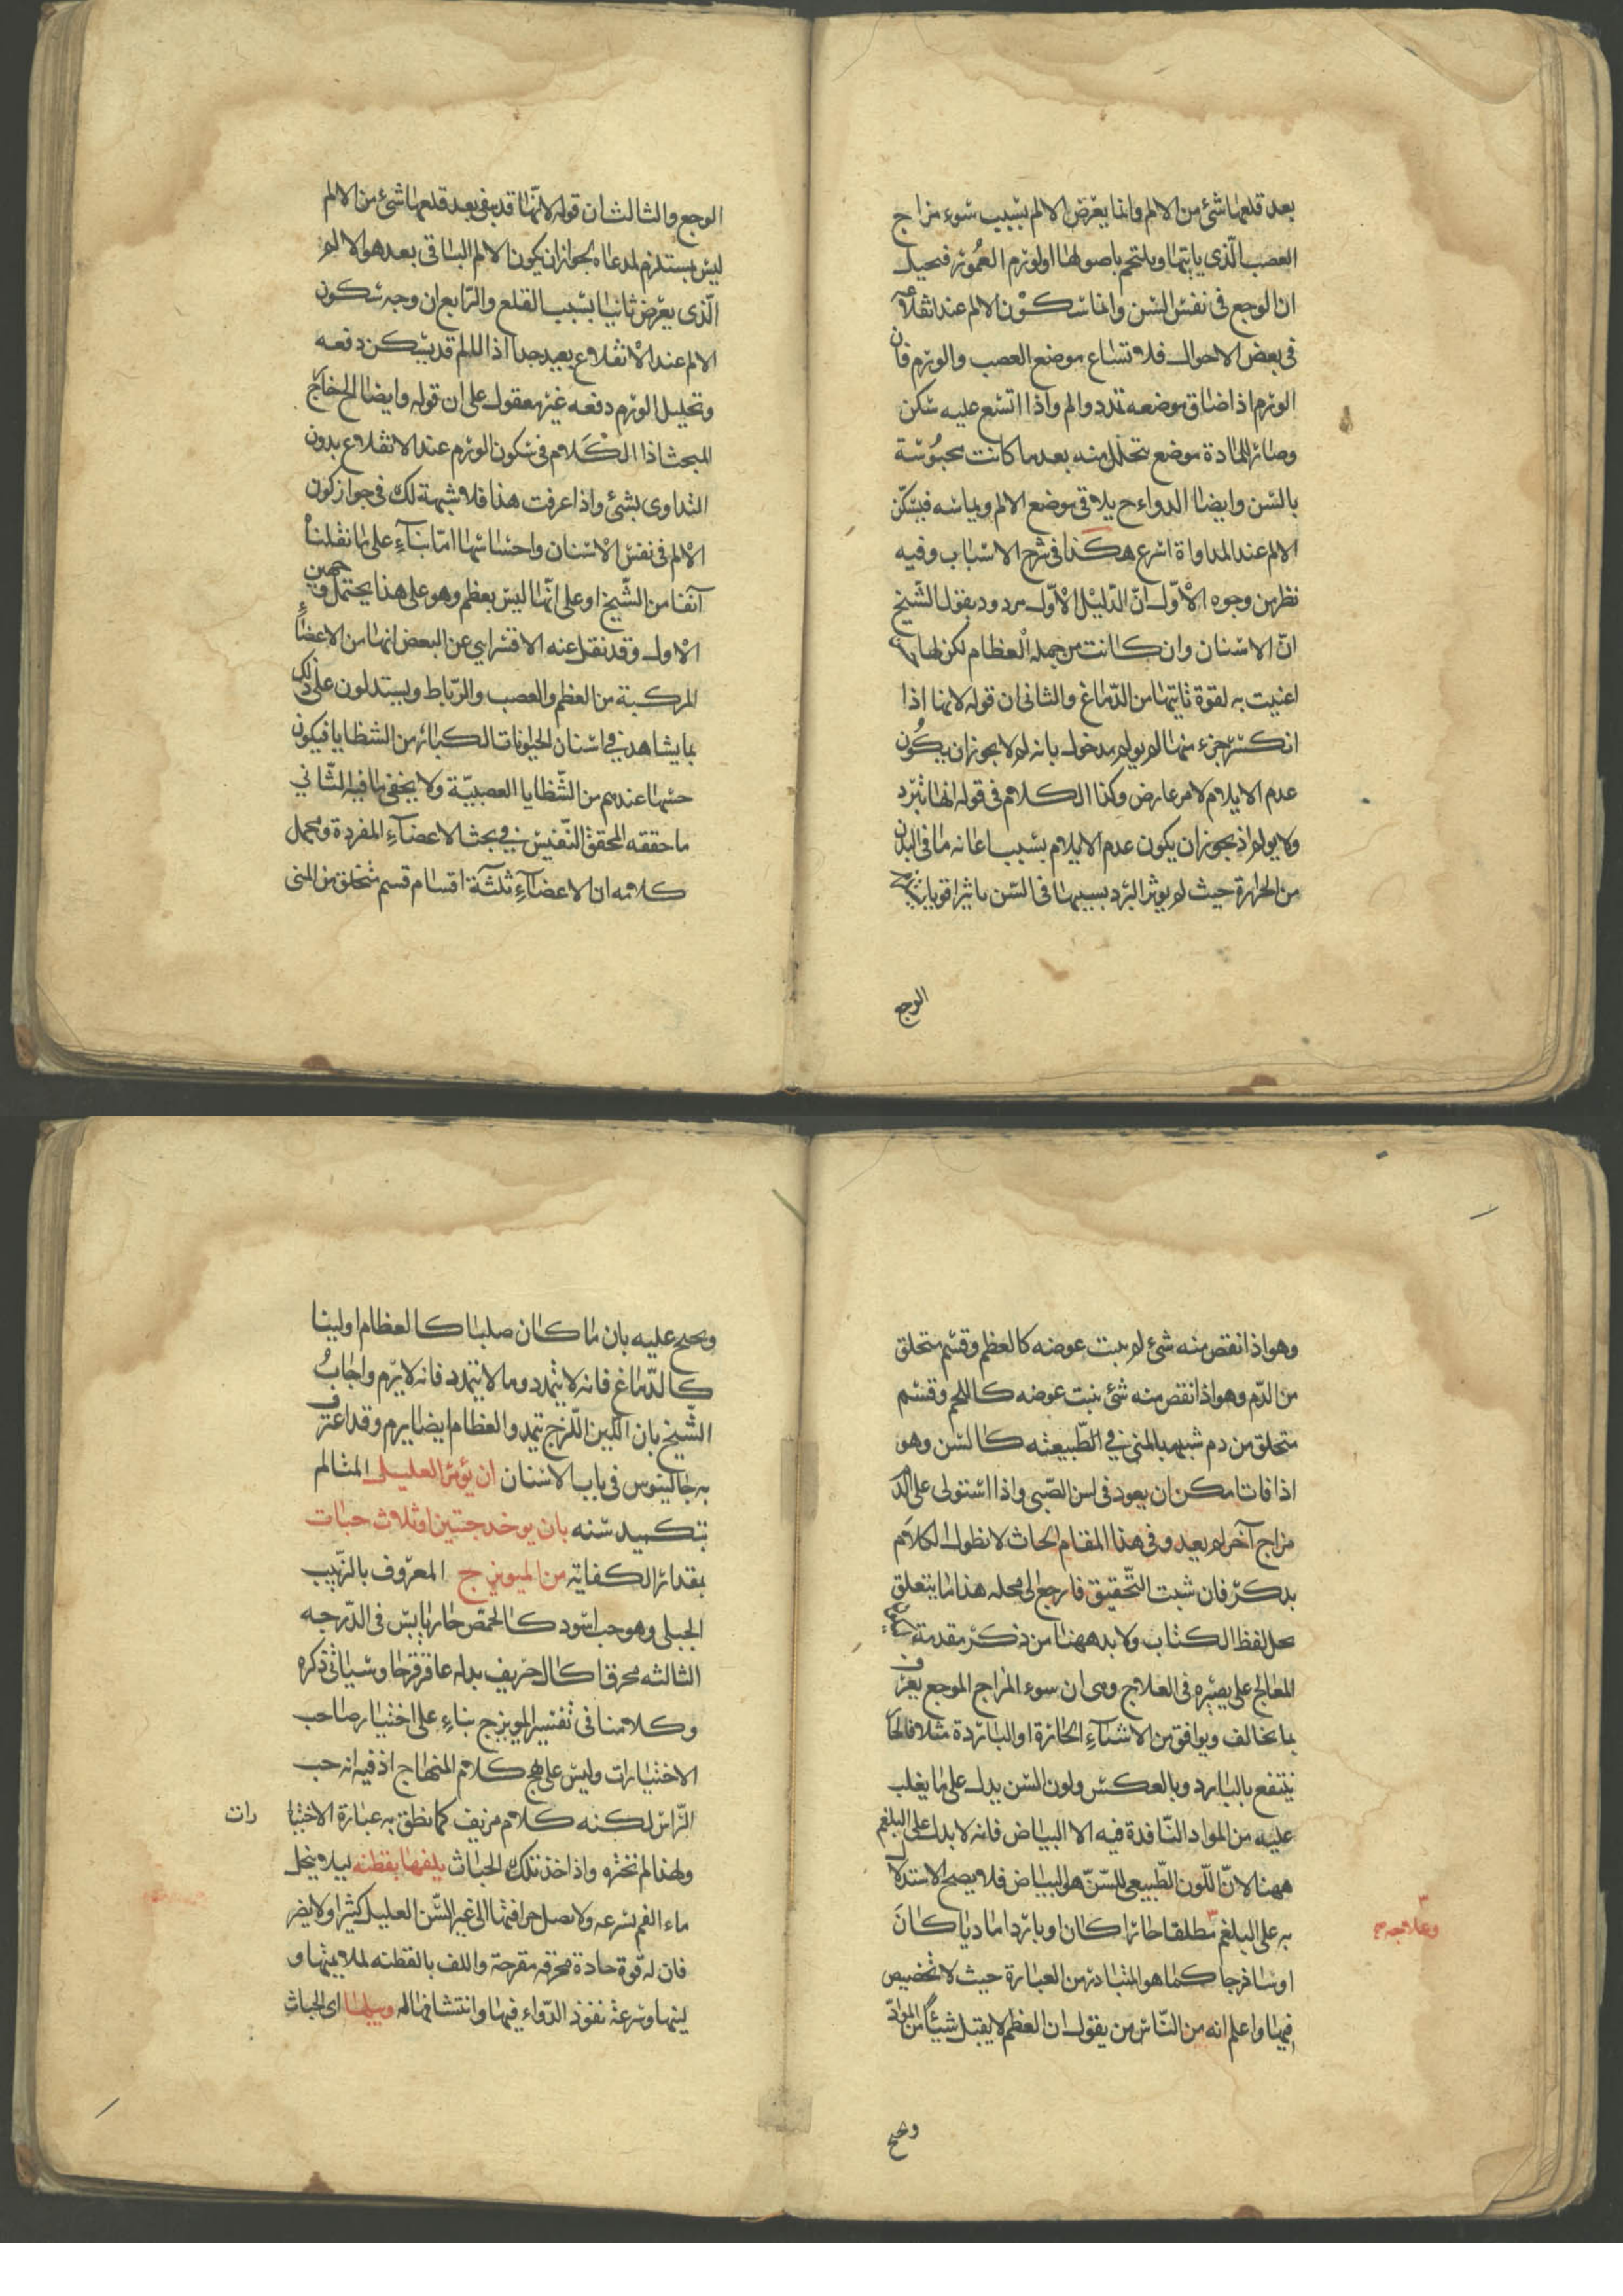 بعد قلعها شئ من الالم وانما يعرض الالم بسبب سوء مزاج
العصب الذى ياتيها ويلتحم باصولها اولورم العمور فيحيل
ان الوجع فى نفس السن وانما سكون الالم عند انقلاعه
فى بعض الاحوال فلاتساع موضع العصب والورم فان
الورم اذا ضاق موضعه تمدد والم واذا اتسع عليه سكن
وصار للمادة موضع يتحلل منه بعد ما كانت محبوسة
بالسن وايضا الدواء ح يلاقى موضع الالم ويماسه فيسكن
الالم عند المداواة اسرع هكذا فى شرح الاسباب وفيه
نظر من وجوه الاول ان الدليل الاول مردود بقول الشيخ
ان الاسنان وان كانت من جملة العظام لكن لها
اعنيت به لقوة ثاتيها من الدماغ والثانى ان قوله لانها اذا
انكسر جزء منها لم يولم مدخول بانه لم لا يجوز ان يكون
عدم الايلام لامر عارض وكذا الكلام فى قوله انها تبرد
ولا يولم اذ يجوز ان يكون عدم الايلام بسبب اعانه ما فى البدن
من الحرارة حيث لم يوثر البرد بسببها فى السن تاثيرا قويا
الوجع
الوجع والثالث ان قوله لانها قد يبقى بعد قلعها شئ من الالم
ليس بمستلزم لمدعاه لجواز ان يكون الالم الباقى بعد هو الالم
الذى يعرض ثانيا بسبب القلع والرابع ان وجه سكون
الالم عند الانقلاع بعيد جدا اذ الالم قد يسكن دفعه
وتحليل الورم دفعه غير معقول على ان قوله وايضا الخ خارج
المبحث اذ الكلام فى سكون الورم عند الانقلاع بدون
التداوى بشئ واذا عرفت هذا فلا شبهة لك فى جواز كون
الالم فى نفس الاسنان واحساسها اما بناء على ما نقلنا
آنفا من الشيخ او على انها ليس بعظم وهو على هذا يحتمل وجهين
الاول وقد نقل عنه الاقسرايى عن البعض انها من الاعضاء
المركبة من العظم والعصب والرباط ويستدلون على ذلك
بما يشاهد فى اسنان الحيوانات الكبار من الشظايا فيكون
حسها عندهم من الشظايا العصبية ولا يخفى ما فيه الثانى
ما حققه المحقق النفيس فى بحث الاعضاء المفردة ومحمل
كلامه ان الاعضاء ثلثة اقسام قسم متخلق من المنى
وهو اذا نقص منه شئ لم ينبت عوضه كالعظم وقسم متخلق
من الدم وهو اذا نقص منه شئ ينبت عوضه كاللحم وقسم
متخلق من دم شبيه بالمنى فى الطبيعته كالسن وهو
اذا فات امكن ان يعود فى سن الصبى واذا استولى على الدم
مزاج آخر لم يعد وفى هذا المقام ابحاث لا نطول الكلام
بذكر فان شئت التحقيق فارجع الى محله هذا ما يتعلق
بحل لفظ الكتاب ولا بد ههنا من ذكر مقدمة
المعالج على بصيره فى العلاج وهى ان سوء المزاج الموجع يعرف
بما يخالف ويوافق من الاشياء الحارة او الباردة مثلا فالحار
ينتفع بالبارد وبالعكس ولون السن يدل على ما يغلب
عليه من المواد النافذة فيه الا البياض فانه لا يدل على البلغم
ههنا لان اللون الطبيعى للسن هو البياض فلا يصح الاستدلا
به على البلغم مطلقا حارا كان او باردا ماديا كان
وعلاجه صح
او ساذجا كما هو المتبادر من العبارة حيث لا تخصيص
فيها واعلم انه من الناس من يقول ان العظم لا يقبل شيئا من المواد
ويحتج
ويحتج عليه بان ما كان صلبا كالعظام او لينا
كالدماغ فانه لا يتمدد وما لا يتمدد فانه لا يرم واجاب
الشيخ بان اللين اللزج يتمد والعظام ايضا يرم وقد اعترف
به جالينوس فى باب الاسنان ان يؤمر العليل المتالم
بتكميد سنه بان يوخذ حبتين او ثلاث حبات
بمقدار الكفاية من الميويزج المعروف بالزبيب
الجبلى وهو حب اسود كالحمص حار يابس فى الدرجه
الثالثه محرقا كال حريف بدله عاقرقرحا وسياتى ذكره
وكلامنا فى تفسير المويزج بناء على اختيار صاحب
الاختيارات وليس على نهج كلام المنهاج اذ فيه انه حب
الراس لكنه كلام مزيف كما نطق به عبارة الاختيا رات
ولهذا لم نختره واذا اخذ تلك الحبات يلفها بقطنه ليلا ينحل
ماء الفم بسرعه ولا يصل حرافتها الى غير السن العليل كثيرا ولا يضر
فان له قوة حادة محرقه مقرحة واللف بالقطنه لملايمتها و
لينها وسرعة نفوذ الدواء فيها وانتشافها له وبيلها اى الحبات